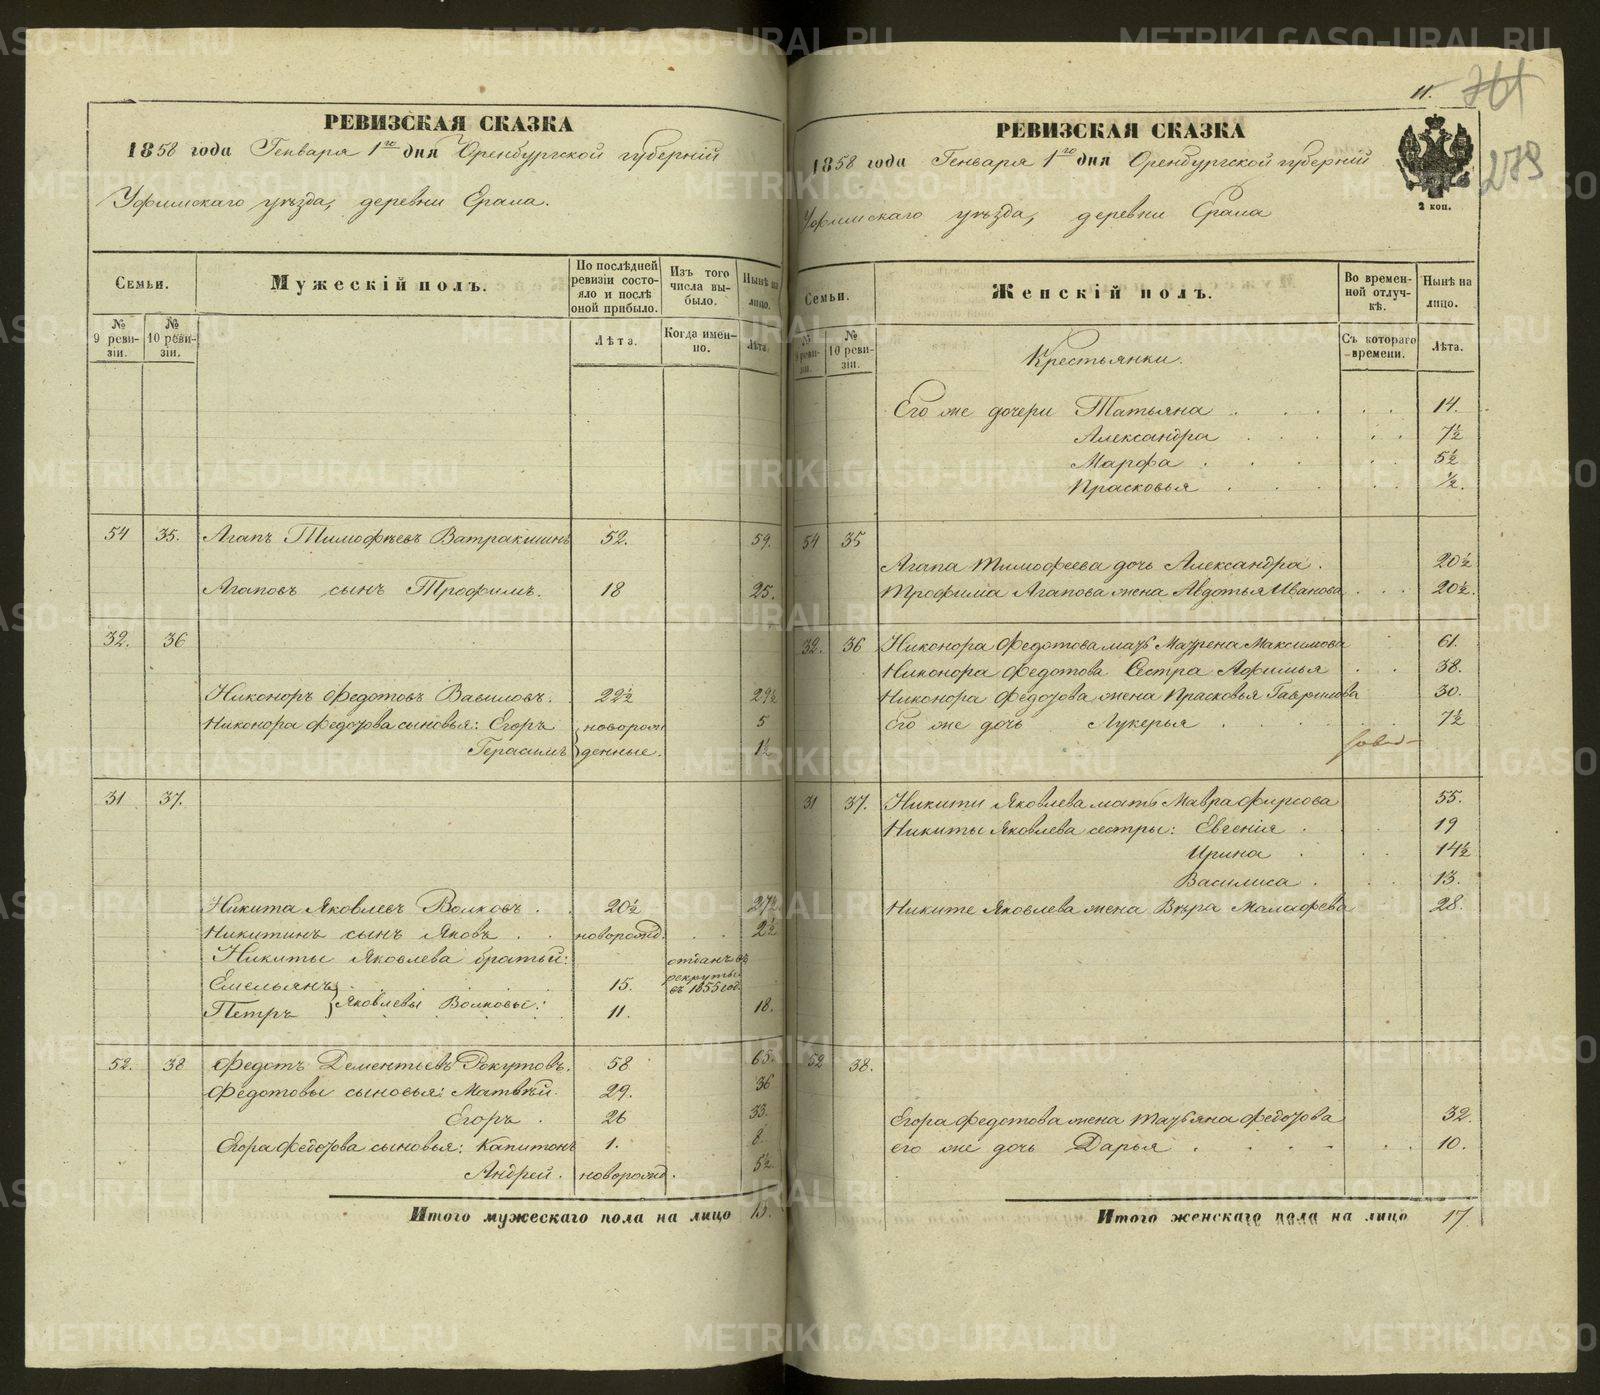 РЕВИЗСКАЯ СКАЗКА
1858 года Генваря 1го дня Оренбургской губерніи
Уфимскаго уѣзда, деревни Ерала.
Семьи.
Мужескій полъ.
По послѣдней ревизіи состояло и послѣ оной прибыло.
Изъ того числа выбыло.
Нынѣ на лицо.
№ 9 ревизіи.
№ 10 ревизіи.
Лѣта.
Когда именно.
Лѣта.
54 35. Агапъ Тимофѣевъ Ватракшинъ 52. 59.
Агаповъ сынъ Трофимъ. 18 25.
32. 36
Никоноръ Федотовъ Вавиловъ. 22½ 29½
Никонора Федотова сыновья: Егоръ новорож 5
Герасимъ денные. 1½
31 37.
Никита Яковлевъ Волковъ. 20½ 27½
Никитинъ сынъ Яковъ новорожд. 2½
Никиты Яковлева братьи:
Емельянъ 15. отданъ въ рекруты въ 1855 год.
Петръ Яковлевы Волковы: 11. 18.
52. 38 Федотъ Дементьевъ Рокутовъ. 58 65.
Федотовы сыновья: Матвѣй. 29. 36
Егоръ. 26 33.
Егора Федотова сыновья: Капитонъ 1. 8
Андрей. новорожд. 5½
Итого мужескаго пола на лицо 13.
11.
279
2 коп.
РЕВИЗСКАЯ СКАЗКА
1858 года Генваря 1го дня Оренбургской губерніи
Уфимскаго уѣзда, деревни Ерала
Семьи.
Женскій полъ.
Во временной отлучкѣ.
Нынѣ на лицо.
9 ревизіи.
№ 10 ревизіи.
Съ котораго времени.
Лѣта.
Крестьянки.
Его же дочери Татьяна 14.
Александра 7½
Марфа 5½
Прасковья ½.
54 35
Агапа Тимофеева дочь Александра. 20½
Трофима Агапова жена Авдотья Иванова 20½.
32. 36 Никонора Федотова мать Маѵрена Максимова 61.
Никонора Федотова Сестра Афимья 38.
Никонора Федотова жена Прасковья Гаврилова 30.
Его же дочь Лукерья 7½
31 37. Никиты Яковлева мать Мавра Фирсова 55.
Никиты Яковлева сестры: Евгенія 19
Ирина 14½
Василиса. 13.
Никите Яковлева жена Вѣра Малафева 28.
52 38.
Егора Федотова жена Татьяна Федотова 32.
его же дочь Дарья 10.
Итого женскаго пола на лицо 17
METRIKI.GASO-URAL.RU